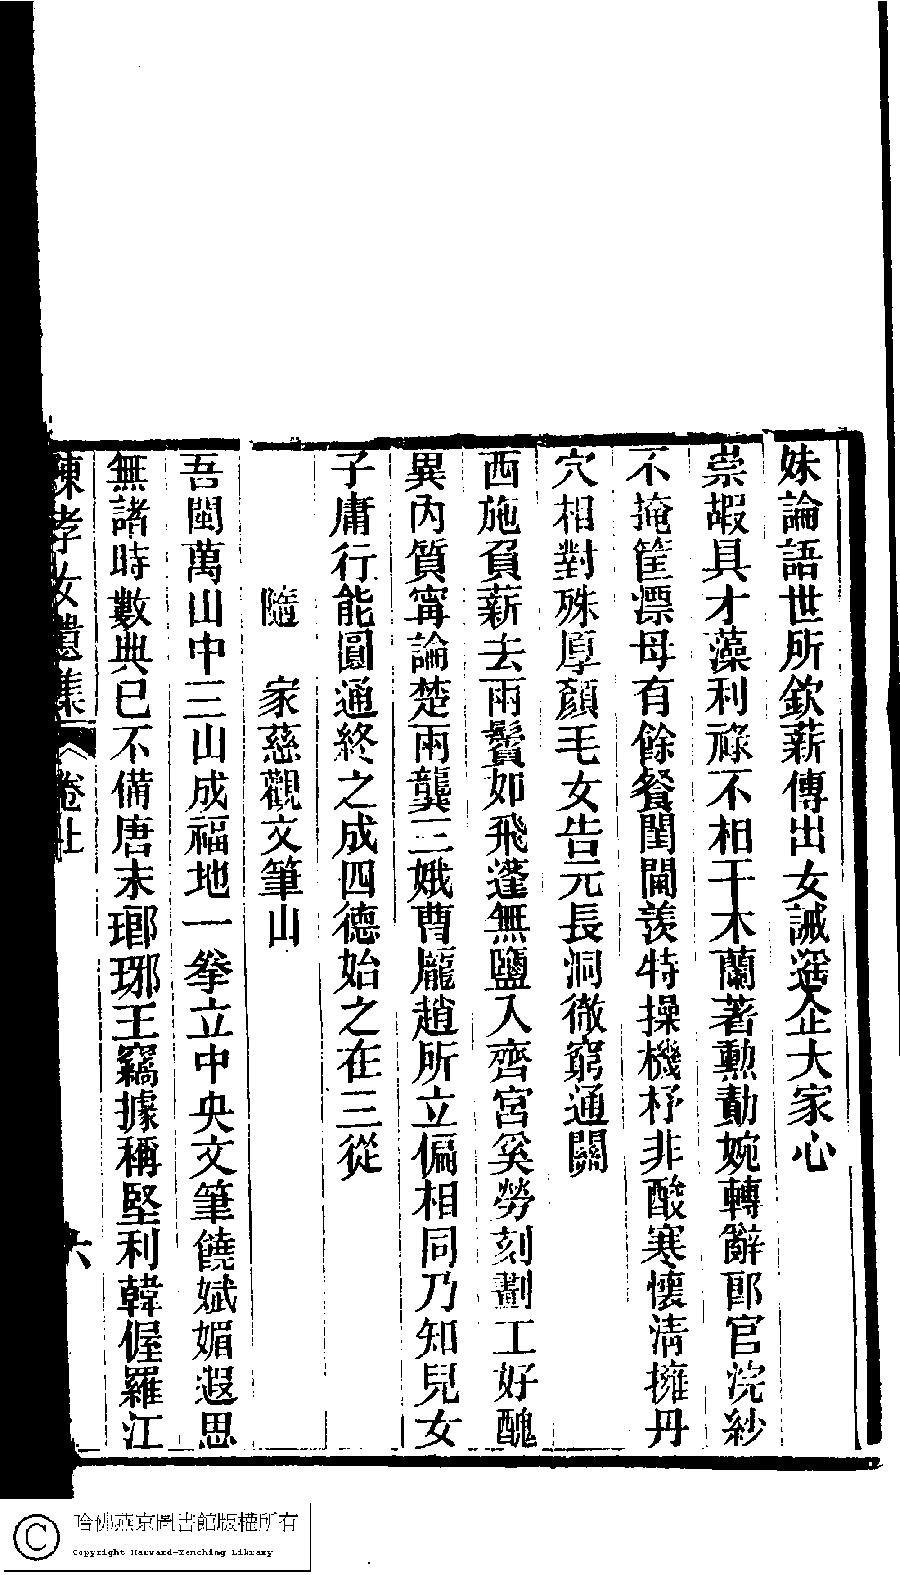 妹論語世所欽薪傳出女誡遥企大家心
崇嘏具才藻利祿不相干木蘭著勲勣婉轉辭郎官浣紗
不掩筐漂母有餘餐閨闈羨特操機杼非酸寒懷清擁丹
穴相對殊厚顏毛女告元長洞徹窮通關
西施負薪去兩鬢如飛蓬無鹽入齊宮奚勞刻劃工好醜
異內質甯論楚兩龔三娥曹龐趙所立偏相同乃知兒女
子庸行能圓通終之成四德始之在三從
隨 家慈觀文筆山
吾閩萬山中三山成福地一拳立中央文筆饒斌媚遐思
無諸時數典已不備唐末瑯琊王竊據稱堅利韓偓羅江
陳孝女遺集 卷上 六
哈佛燕京圖書館版權所有
Copyright Harvard-Yenching Library